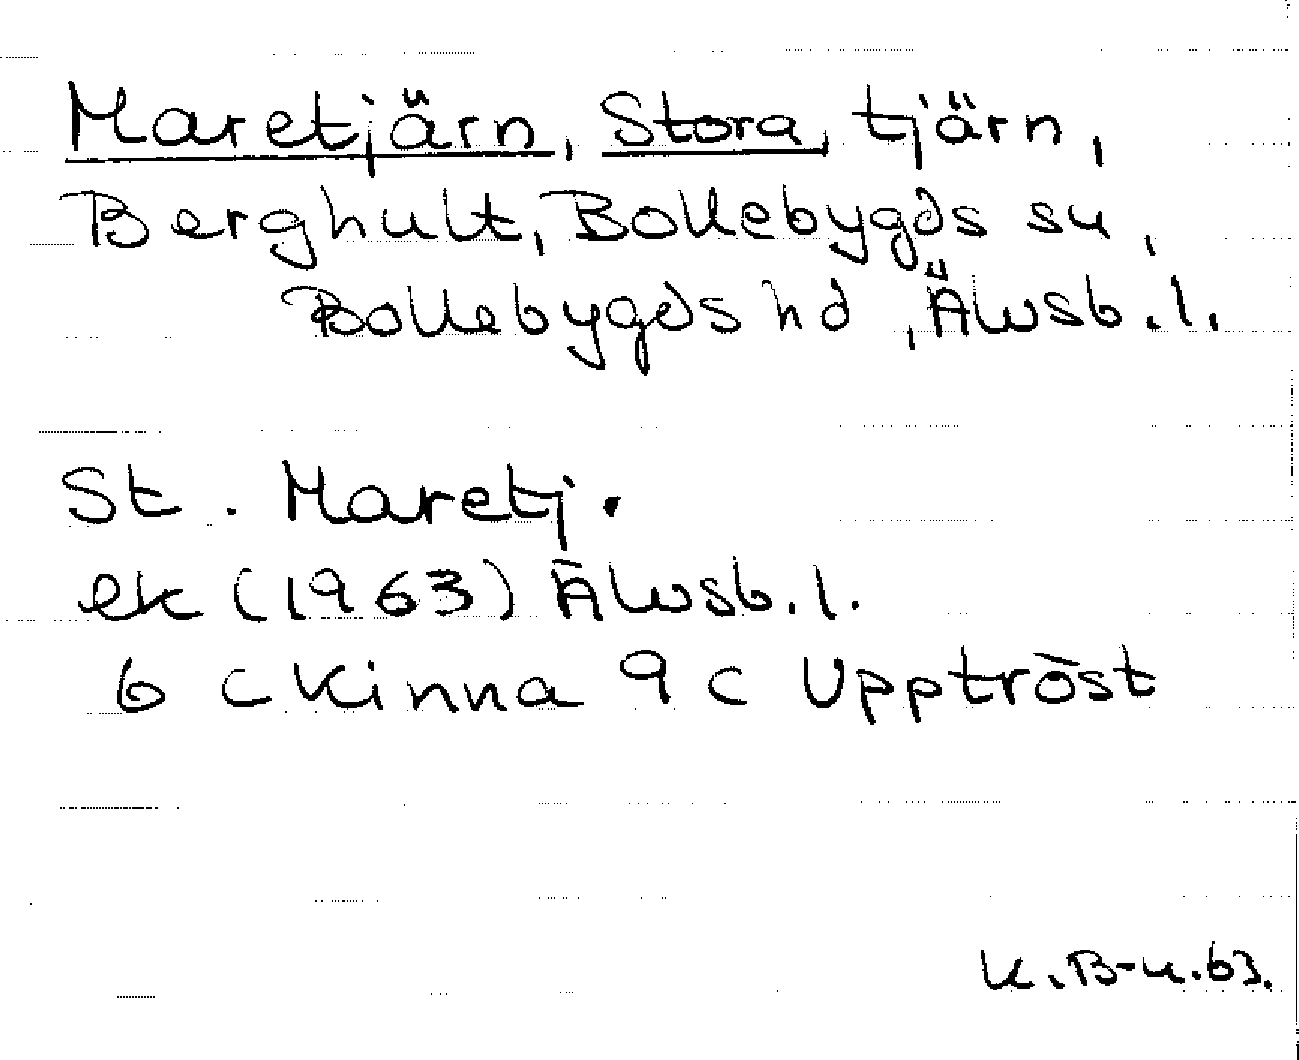 Maretjärn, Stora, tjärn,
Berghult, Bollebygds sn,
Bollebygds hd, Älvsb. l.
St. Maretj.
ek (1963) Älvsb. l.
6 c Kinna 9 c Upptröst
K. B-n. 63.